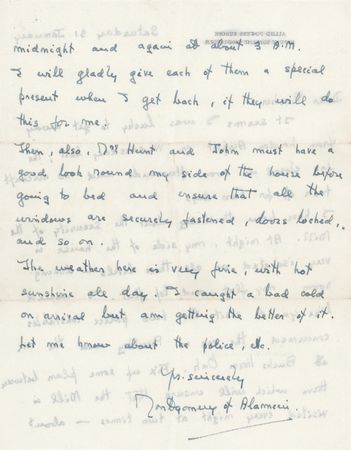 midnight and again at about 3 A.M.
I will gladly give each of them a special
present when I get back, if they will do
this for me.
Then, also, Mrs Hunt and John must have a
good look round my side of the house before
going to bed and ensure that all the
windows are securely fastened, doors locked,
and so on.
The weather here is very fine, with hot
sunshine all day. I caught a bad cold
on arrival but am getting the better of it.
Let me know about the police, etc.
Yrs. sincerely
Montgomery of Alamein.